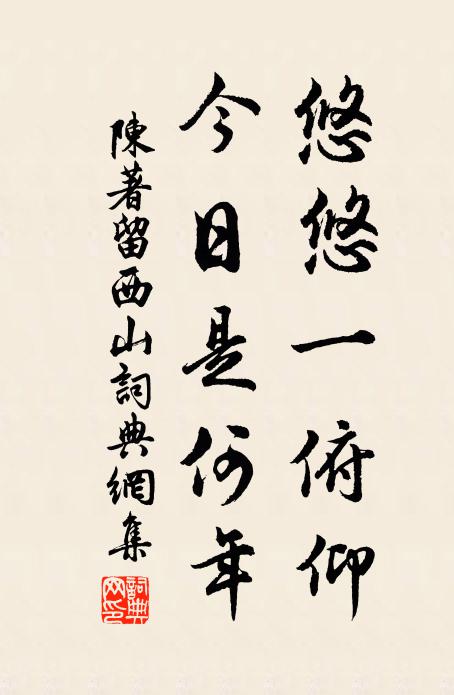 悠悠一俯仰
今日是何年
陳著留西山詞典網集
詞典网印